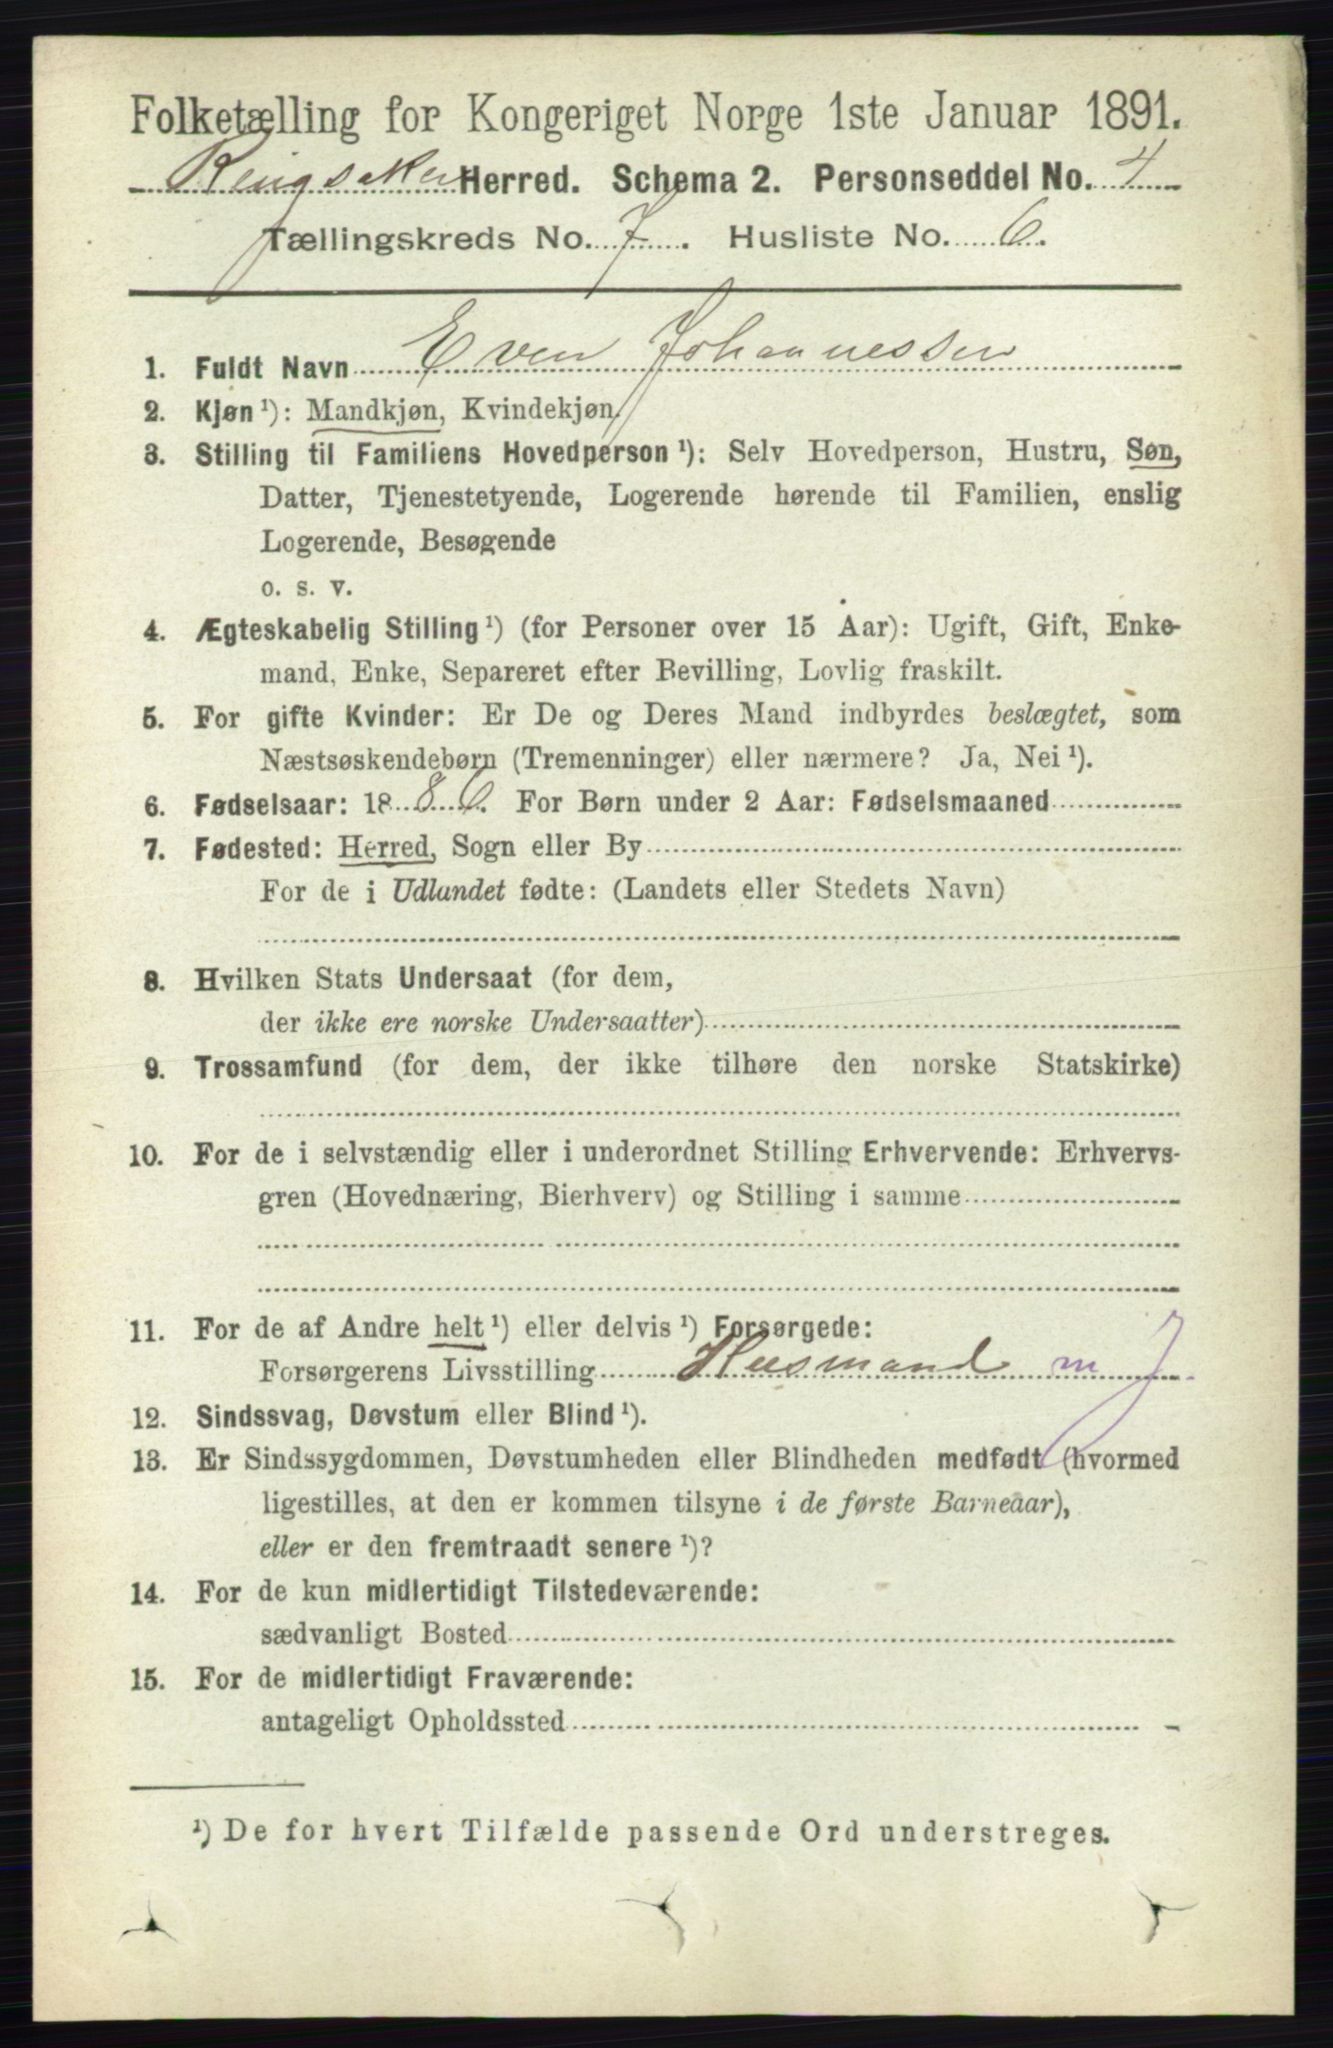 Folketælling for Kongeriget Norge 1ste Januar 1891.
Ringsaker Herred. Schema 2. Personseddel No. 4
Tællingskreds No. 7. Husliste No. 6.
1. Fuldt Navn Even Johannessen
2. Kjøn ¹): Mandkjøn, Kvindekjøn.
3. Stilling til Familiens Hovedperson ¹): Selv Hovedperson, Hustru, Søn,
Datter, Tjenestetyende, Logerende hørende til Familien, enslig
Logerende, Besøgende
o. s. v.
4. Ægteskabelig Stilling ¹) (for Personer over 15 Aar): Ugift, Gift, Enke-
mand, Enke, Separeret efter Bevilling, Lovlig fraskilt.
5. For gifte Kvinder: Er De og Deres Mand indbyrdes beslægtet, som
Næstsøskendebørn (Tremenninger) eller nærmere? Ja, Nei ¹).
6. Fødselsaar: 1886. For Børn under 2 Aar: Fødselsmaaned
7. Fødested: Herred, Sogn eller By
For de i Udlandet fødte: (Landets eller Stedets Navn)
8. Hvilken Stats Undersaat (for dem,
der ikke ere norske Undersaatter)
9. Trossamfund (for dem, der ikke tilhøre den norske Statskirke)
10. For de i selvstændig eller i underordnet Stilling Erhvervende: Erhvervs-
gren (Hovednæring, Bierhverv) og Stilling i samme
11. For de af Andre helt ¹) eller delvis ¹) Forsørgede:
Forsørgerens Livsstilling Husmand m J
12. Sindssvag, Døvstum eller Blind ¹).
13. Er Sindssygdommen, Døvstumheden eller Blindheden medfødt (hvormed
ligestilles, at den er kommen tilsyne i de første Barneaar),
eller er den fremtraadt senere ¹)?
14. For de kun midlertidigt Tilstedeværende:
sædvanligt Bosted
15. For de midlertidigt Fraværende:
antageligt Opholdssted
¹) De for hvert Tilfælde passende Ord understreges.